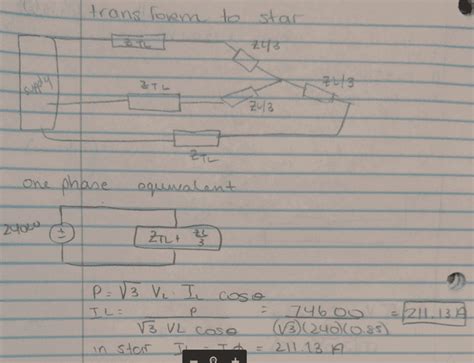 transform to star
ZTL
ZL/3
supply
ZTL
ZL/3
ZL/3
ZTL
one phase equivalent
ZTL + ZL/3
P = √3 VL · IL cosθ
IL = P / √3 VL cosθ = 74600 / (√3)(240)(0.85) = 211.13 A
in star IL = Iϕ = 211.13 A